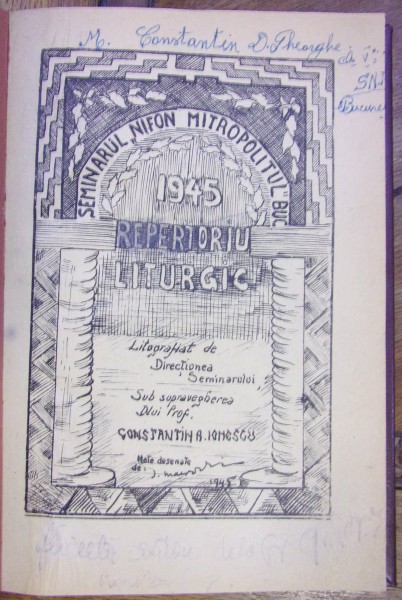 M. Constantin D. Gheorghe
SEMINARUL NIFON MITROPOLITUL BUC
1945
REPERTORIU
LITURGIC
Litografiat de
Direcțiunea
Seminarului
Sub supravegherea
Dlui Prof.
CONSTANTIN A. IONESCU
Note desenate
de:
1945